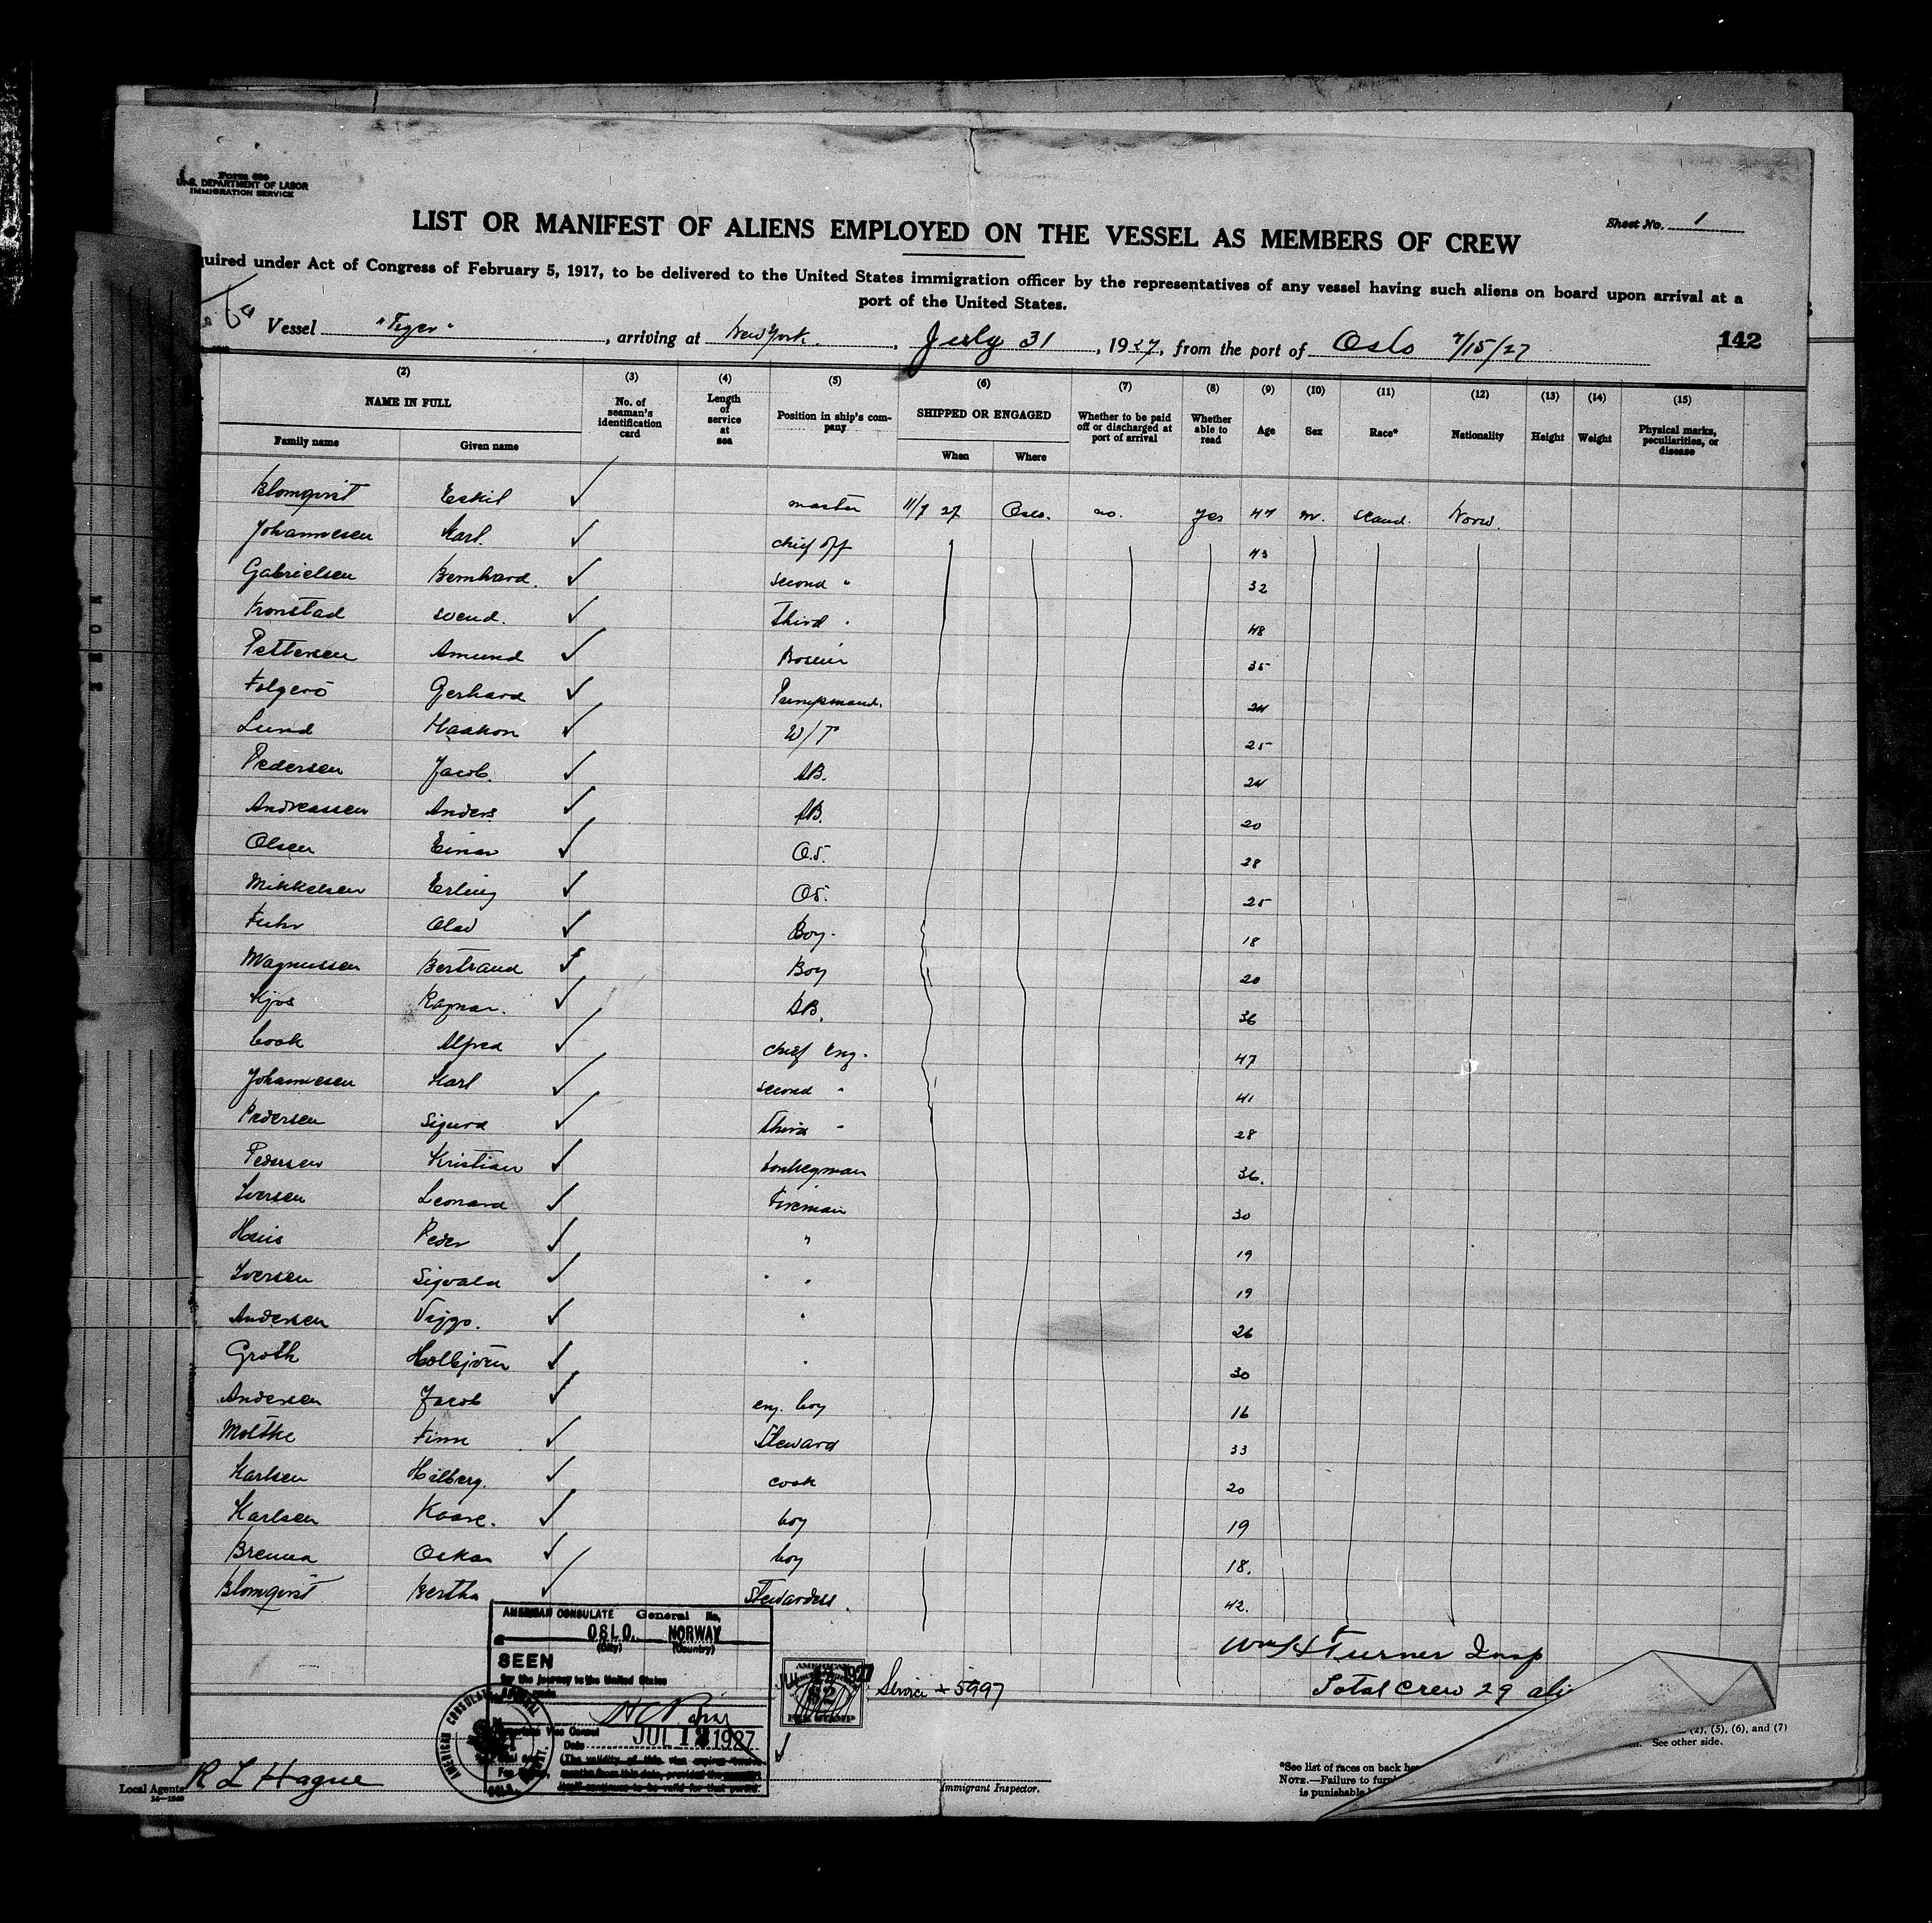 Form 680
U.S. DEPARTMENT OF LABOR
IMMIGRATION SERVICE
Sheet No. 1
LIST OR MANIFEST OF ALIENS EMPLOYED ON THE VESSEL AS MEMBERS OF CREW
quired under Act of Congress of February 5, 1917, to be delivered to the United States immigration officer by the representatives of any vessel having such aliens on board upon arrival at a
port of the United States.
Vessel "Tiger", arriving at New York, July 31, 1927, from the port of Oslo 7/15/27
142
(2) (3) (4) (5) (6) (7) (8) (9) (10) (11) (12) (13) (14) (15)
NAME IN FULL No. of seaman's identification card Length of service at sea Position in ship's company SHIPPED OR ENGAGED Whether to be paid off or discharged at port of arrival Whether able to read Age Sex Race* Nationality Height Weight Physical marks, peculiarities, or disease
Family name Given name When Where
Blomqvist Eskil ✓ master 11/7 27 Oslo. no. yes 47 m. Scand. Norw.
Johannesen Karl. ✓ chief off 43
Gabrielsen Bernhard. ✓ second " 32
Tronstad Svend. ✓ third " 48
Pettersen Amund ✓ 35
Folgerö Gerhard ✓ Pumpmand. 24
Lund Haakon ✓ W/T 25
Pedersen Jacob. ✓ AB. 24
Andreassen Anders ✓ AB. 20
Olsen Einar ✓ O.S. 28
Mikkelsen Erling ✓ OS. 25
Fuhr Olav ✓ Boy. 18
Magnussen Bertrand ✓ Boy 20
Kjos Ragnar. ✓ AB. 36
Cook Alfred ✓ chief eng. 47
Johannesen Karl ✓ second " 41
Pedersen Sigurd ✓ third " 28
Pedersen Kristian ✓ Donkeyman 36.
Iversen Leonard ✓ Fireman 30
Peder ✓ " 19
Iversen Sigvald ✓ " " 19
Andersen Viggo. ✓ " 26
Groth ✓ " 30
Andersen Jacob ✓ eng. boy 16
Moltke Finn ✓ Steward 33
Karlsen Hilberg. ✓ cook 20
Karlsen Kaare. ✓ boy 19
Brenna Oskar ✓ boy 18.
Blomqvist Bertha ✓ Stewardess. 42.
AMERICAN CONSULATE General No.
OSLO, NORWAY
(City) (Country)
SEEN
for the journey to the United States
American Vice Consul
Date JUL 12 1927
AMERICAN CONSULATE GENERAL
AMERICAN
$2
FEE STAMP
1927
Service * 5997
Wm H Turner Insp
Total Crew 29 ali
(2), (5), (6), and (7)
See other side.
*See list of races on back
NOTE.—Failure to
is punishable
Local Agents R L Hague
Immigrant Inspector.